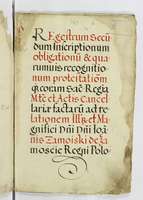 REgestrum Secū
dum Inscriptionum
obligationū & qua
rumuis recognitio
num protestatiōm
q; coram Sac̄ Regia
Mte et Actis Cancel
lariæ factarū ad re
lationem Illr̄ et Ma
gnifici Dn̄i Dn̄i Ioā
nis Zamoiski de Za
moscie Regni Polo